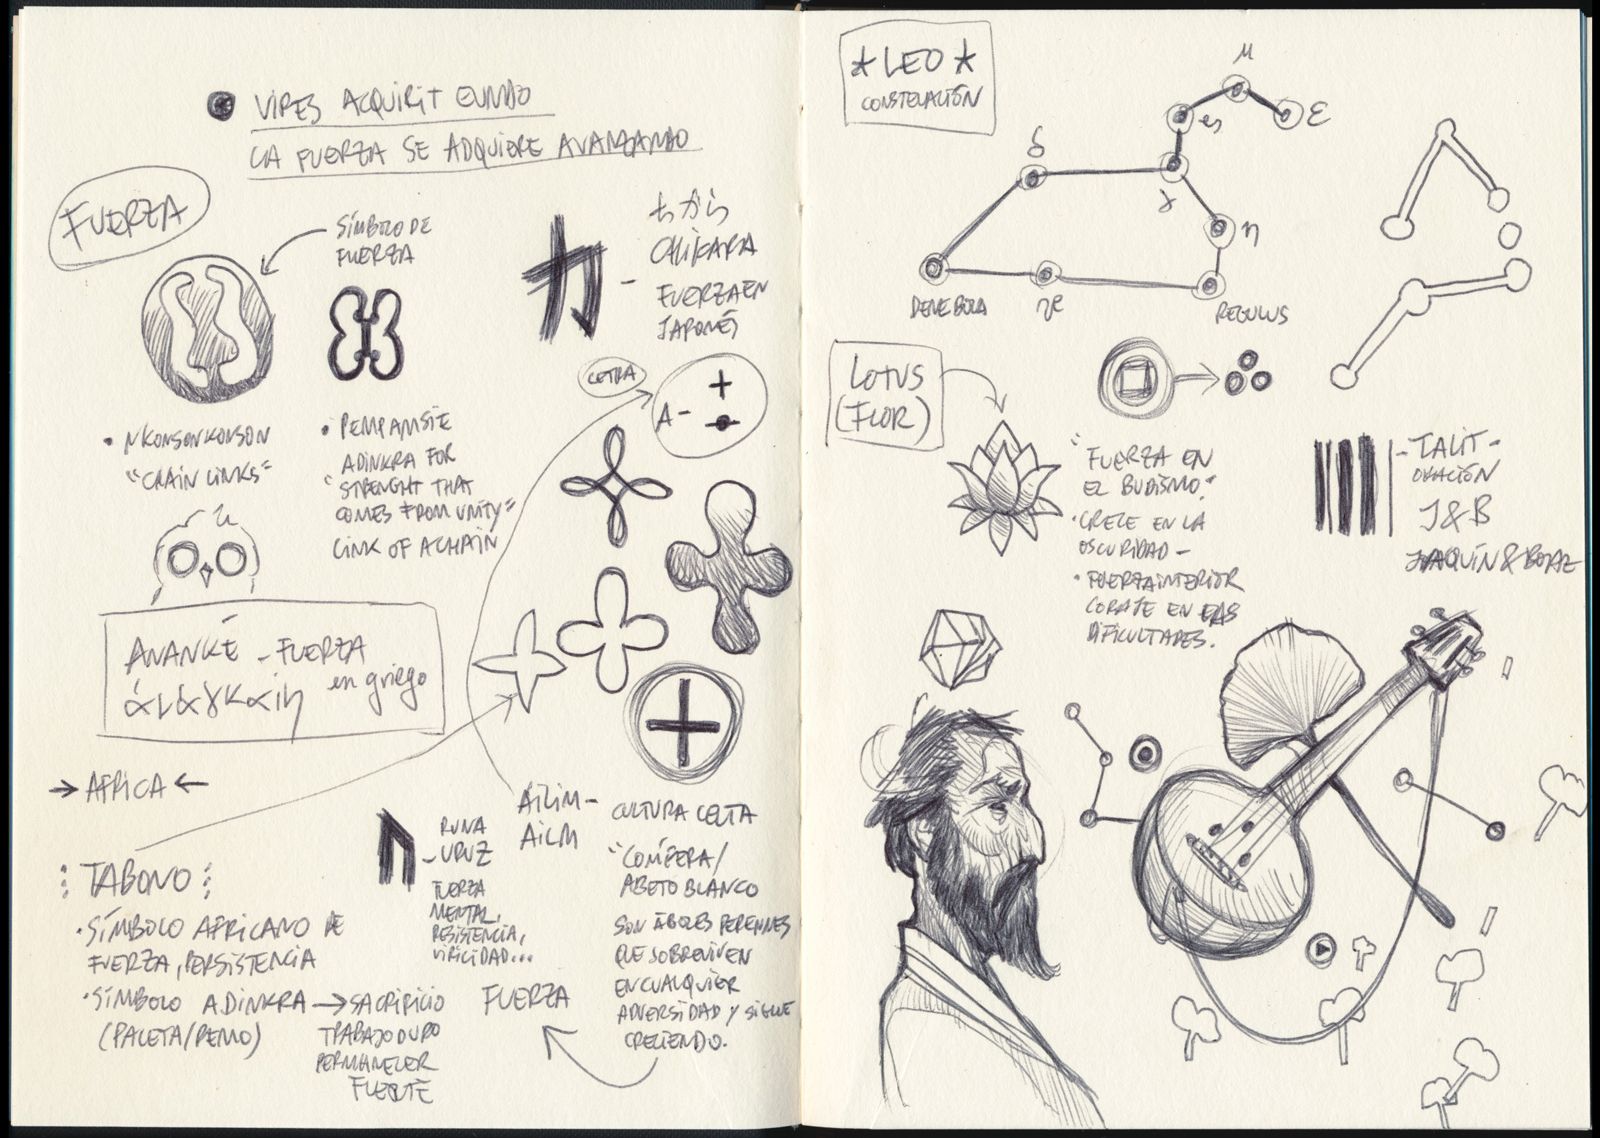 VIRES ACQUIRIT EUNDO
LA FUERZA SE ADQUIERE AVANZANDO
FUERZA
SÍMBOLO DE
FUERZA
力
ちから
CHIKARA
FUERZA EN
JAPONÉS
LETRA
A -
• NKONSONKONSON
"CHAIN LINKS"
• PEMPAMSIE
ADINKRA FOR
"STRENGHT THAT
COMES FROM UNITY"
LINK OF A CHAIN
ANANKÉ - FUERZA
en griego
→ AFRICA ←
TABONO
• SÍMBOLO AFRICANO DE
FUERZA, PERSISTENCIA
• SÍMBOLO ADINKRA → SACRIFICIO
(PALETA/REMO)
TRABAJO DURO
PERMANECER
FUERTE
RUNA
URUZ
FUERZA
MENTAL,
RESISTENCIA,
VIRILIDAD...
AILIM -
AILM
CULTURA CELTA
"CONÍFERA/
ABETO BLANCO
SON ÁBOLES PERENNES
QUE SOBREVIVEN
EN CUALQUIER
ADVERSIDAD Y SIGUE
CRECIENDO.
FUERZA
★ LEO ★
CONSTELACIÓN
μ
ε
δ
γ
η
DENEBOLA
REGULUS
LOTUS
(FLOR)
"FUERZA EN
EL BUDISMO."
• CRECE EN LA
OSCURIDAD -
• FUERZA INTERIOR
CORAJE EN LAS
DIFICULTADES.
- TALIT -
ORACIÓN
J & B
JOAQUÍN & BOAZ